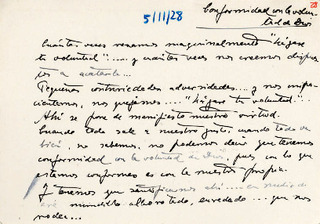 5/11/28
Conformidad con la volun-
tad de Dios
Cuántas veces rezamos maquinalmente "hágase
tu voluntad" ..... y cuántas veces nos creemos dispues-
tos a acatarla...
Pequeñas contrariedades adversidades.... y nos impa-
cientamos, nos quejamos.... "Hágase tu voluntad"...
Ahí se pone de manifiesto nuestra virtud.
Cuando todo sale a nuestro gusto, cuando todo va
bien, no sabemos, no podemos decir que tenemos
conformidad con la voluntad de Dios, pues con lo que
estamos conformes es con la nuestra propia.
Y tenemos que santificarnos ahí.... en medio de
este mundillo alborotado, enredado.... que nos
rodea...